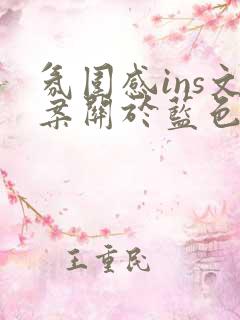 氛围感ins文
案關於藍色
王重民